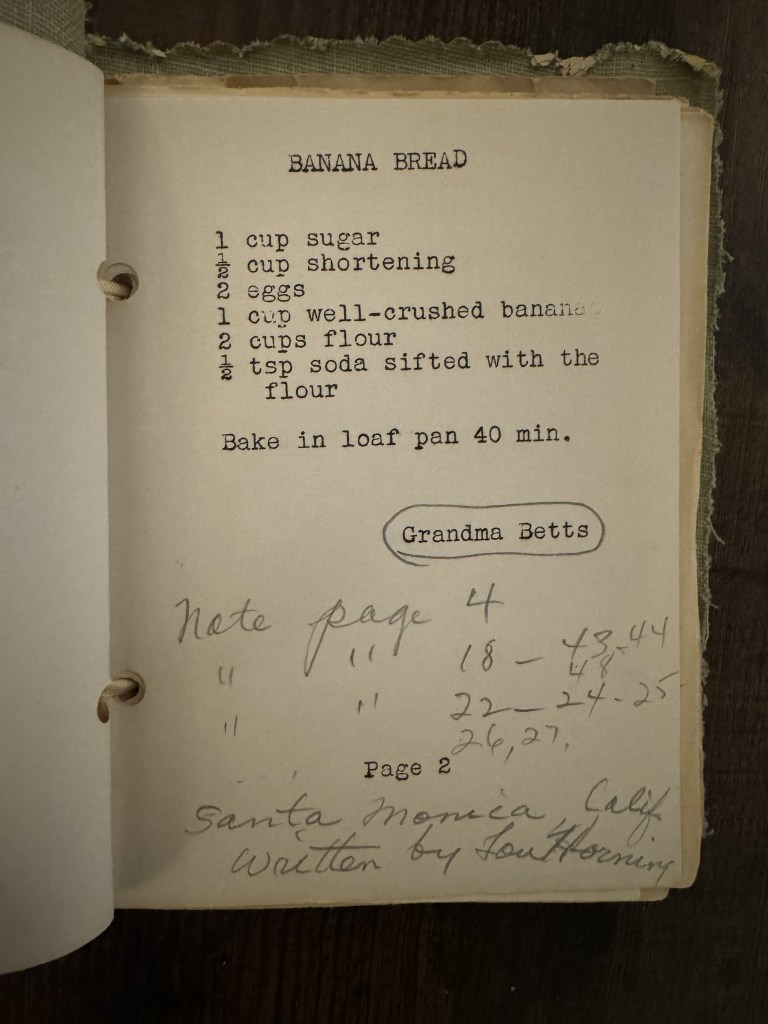 BANANA BREAD
1 cup sugar
½ cup shortening
2 eggs
1 cup well-crushed bananas
2 cups flour
½ tsp soda sifted with the
flour
Bake in loaf pan 40 min.
Grandma Betts
Note page 4
" " 18 – 43-44
48
" " 22 – 24-25
26, 27,
Page 2
Santa Monica, Calif
Written by Lou Horning